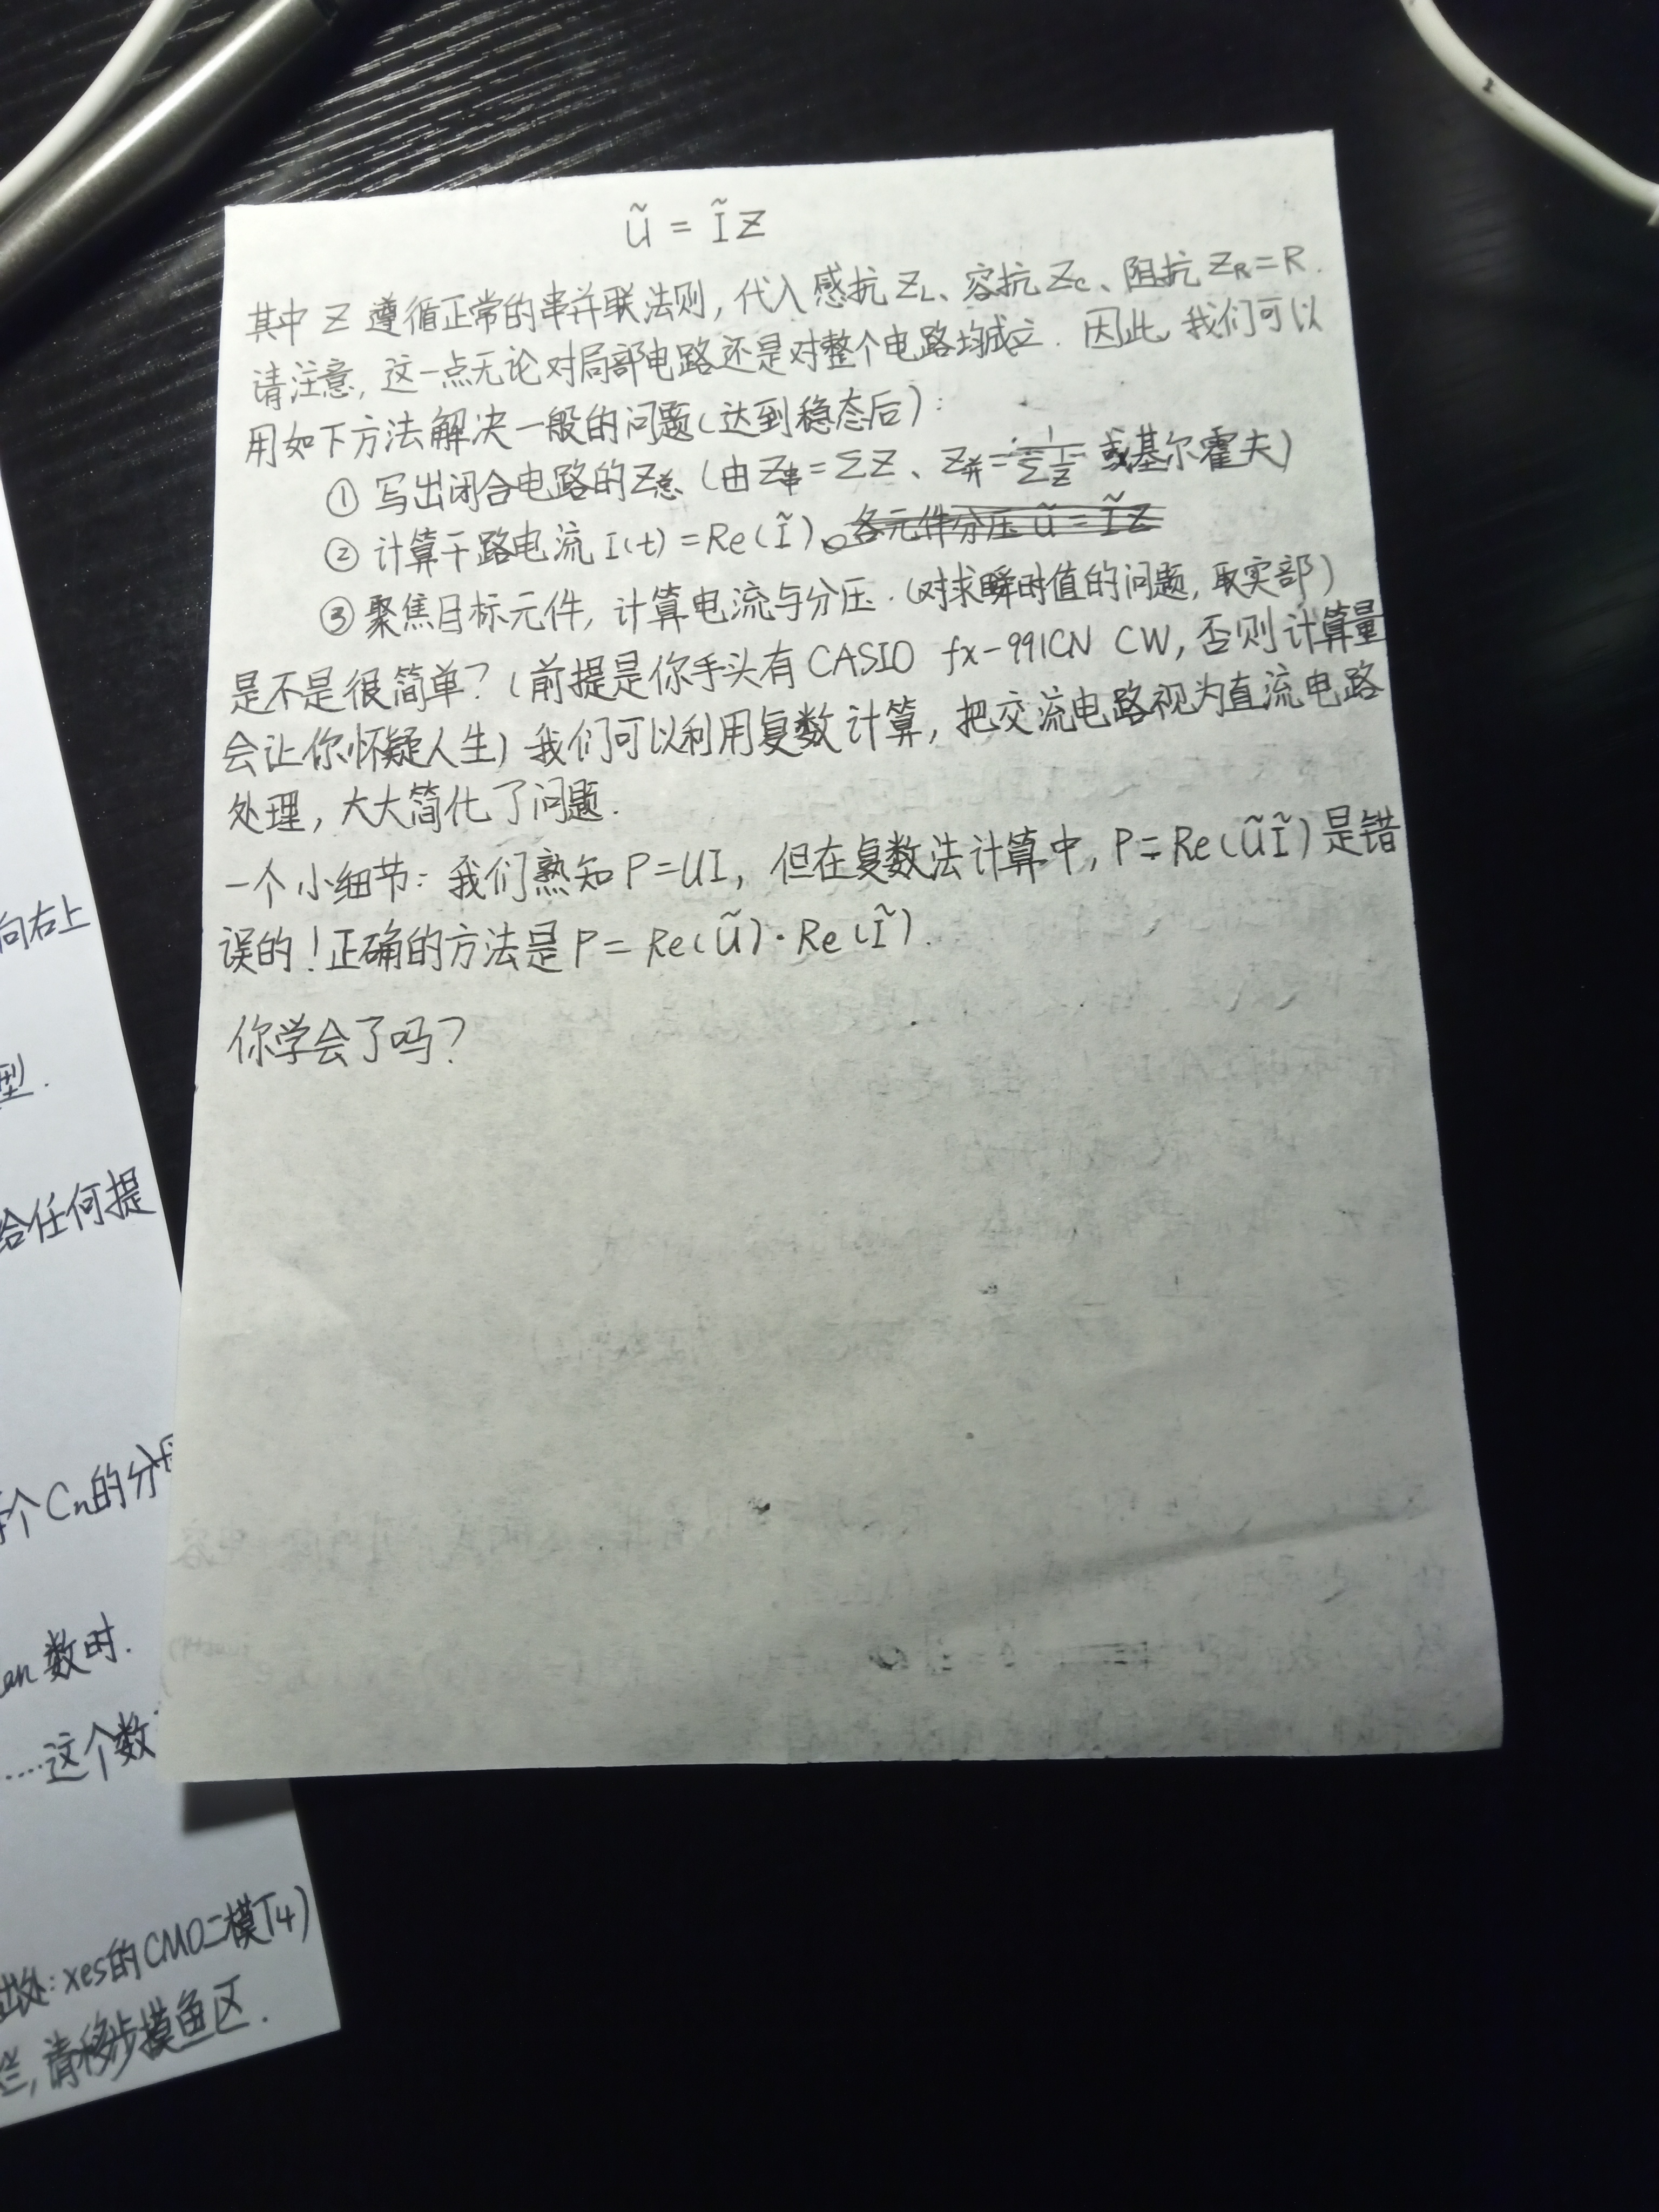 Ũ = ĨZ
其中 Z 遵循正常的串并联法则, 代入感抗 Z_L、容抗 Z_C、阻抗 Z_R=R.
请注意, 这一点无论对局部电路还是对整个电路均成立. 因此, 我们可以
用如下方法解决一般的问题(达到稳态后):
① 写出闭合电路的Z总 (由Z串=ΣZ、Z并=1/(Σ1/Z) 或基尔霍夫)
② 计算干路电流 I(t)=Re(Ĩ)。各元件分压 Ũ=ĨZ
③ 聚焦目标元件, 计算电流与分压. (对求瞬时值的问题, 取实部)
是不是很简单? (前提是你手头有CASIO fx-991CN CW, 否则计算量
会让你怀疑人生) 我们可以利用复数计算, 把交流电路视为直流电路
处理, 大大简化了问题.
一个小细节: 我们熟知 P=UI, 但在复数法计算中, P=Re(ŨĨ)是错
误的! 正确的方法是 P=Re(Ũ)·Re(Ĩ).
你学会了吗?
向右上
型.
给任何提
个Cn的分
en 数时.
……这个数
出处: xes的CMO二模T4)
请移步摸鱼区.